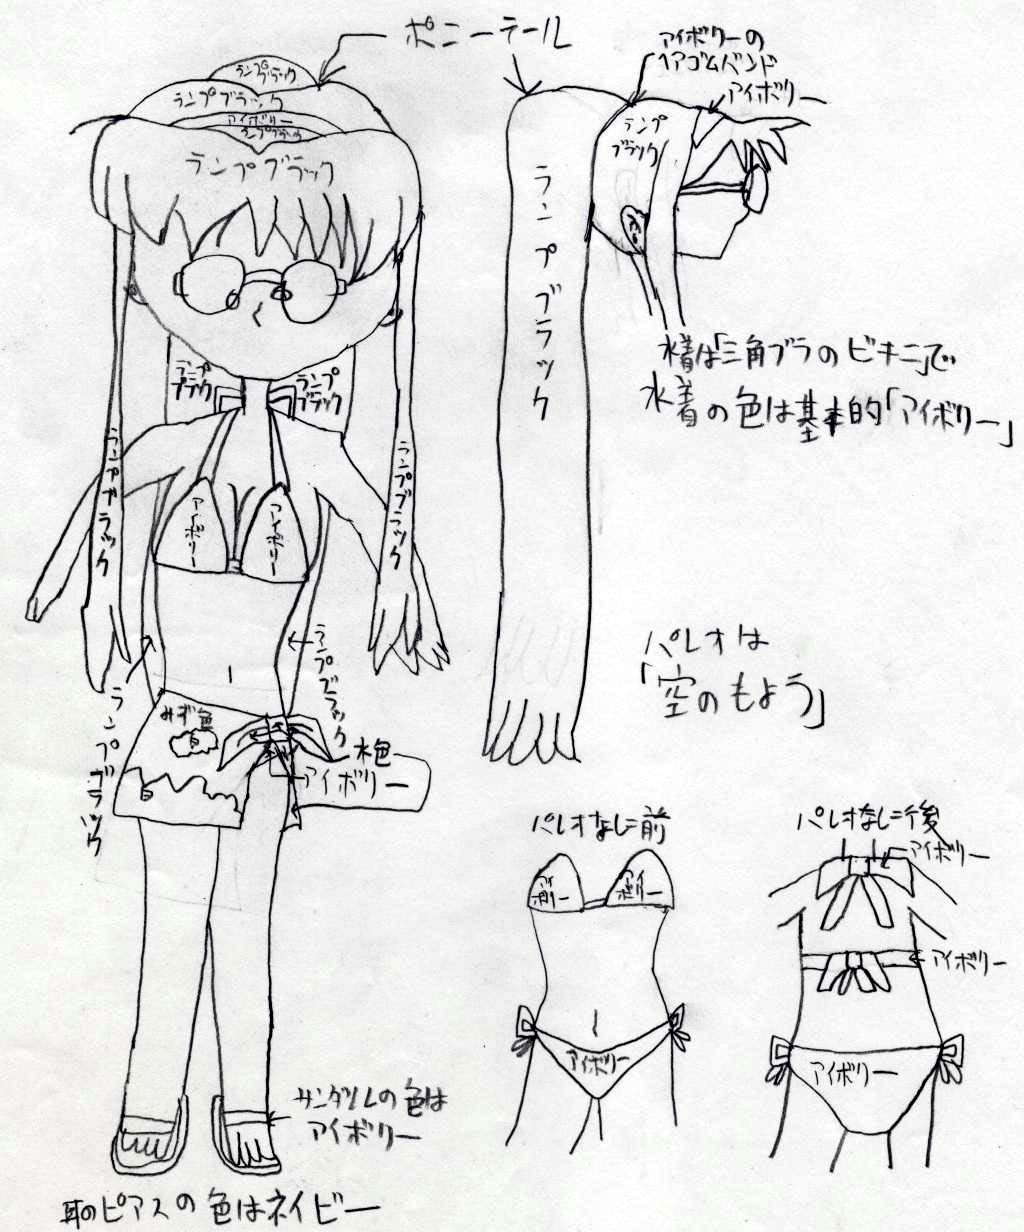 ポニーテール
アイボリーの
ヘアゴムバンド
アイボリー
ランプ
ブラック
ランプブラック
アイボリー
ランプブラック
ランプブラック
ランプ
ブラック
ランプブラック
水着は「三角ブラのビキニ」で
水着の色は基本的「アイボリー」
ランプ
ブラック
ランプ
ブラック
ランプブラック
ランプブラック
アイボリー
アイボリー
ランプブラック
ランプブラック
パレオは
「空のもよう」
みず色
水色
アイボリー
パレオなしに前
アイボリー
アイボリー
アイボリー
パレオなしに後
アイボリー
アイボリー
アイボリー
サンダルの色は
アイボリー
耳のピアスの色はネイビー